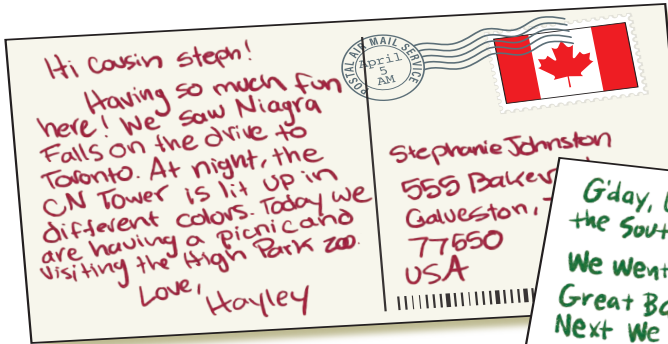 Hi Cousin Steph!
Having so much fun
here! We saw Niagra
Falls on the drive to
Toronto. At night, the
CN Tower is lit up in
different colors. Today we
are having a picnic and
visiting the High Park zoo.
Love,
Hayley
POSTAL AIR MAIL SERVICE
April
5
AM
Stephanie Johnston
555
Galveston,
77650
USA
G'day,
the
We went
Great
Next We